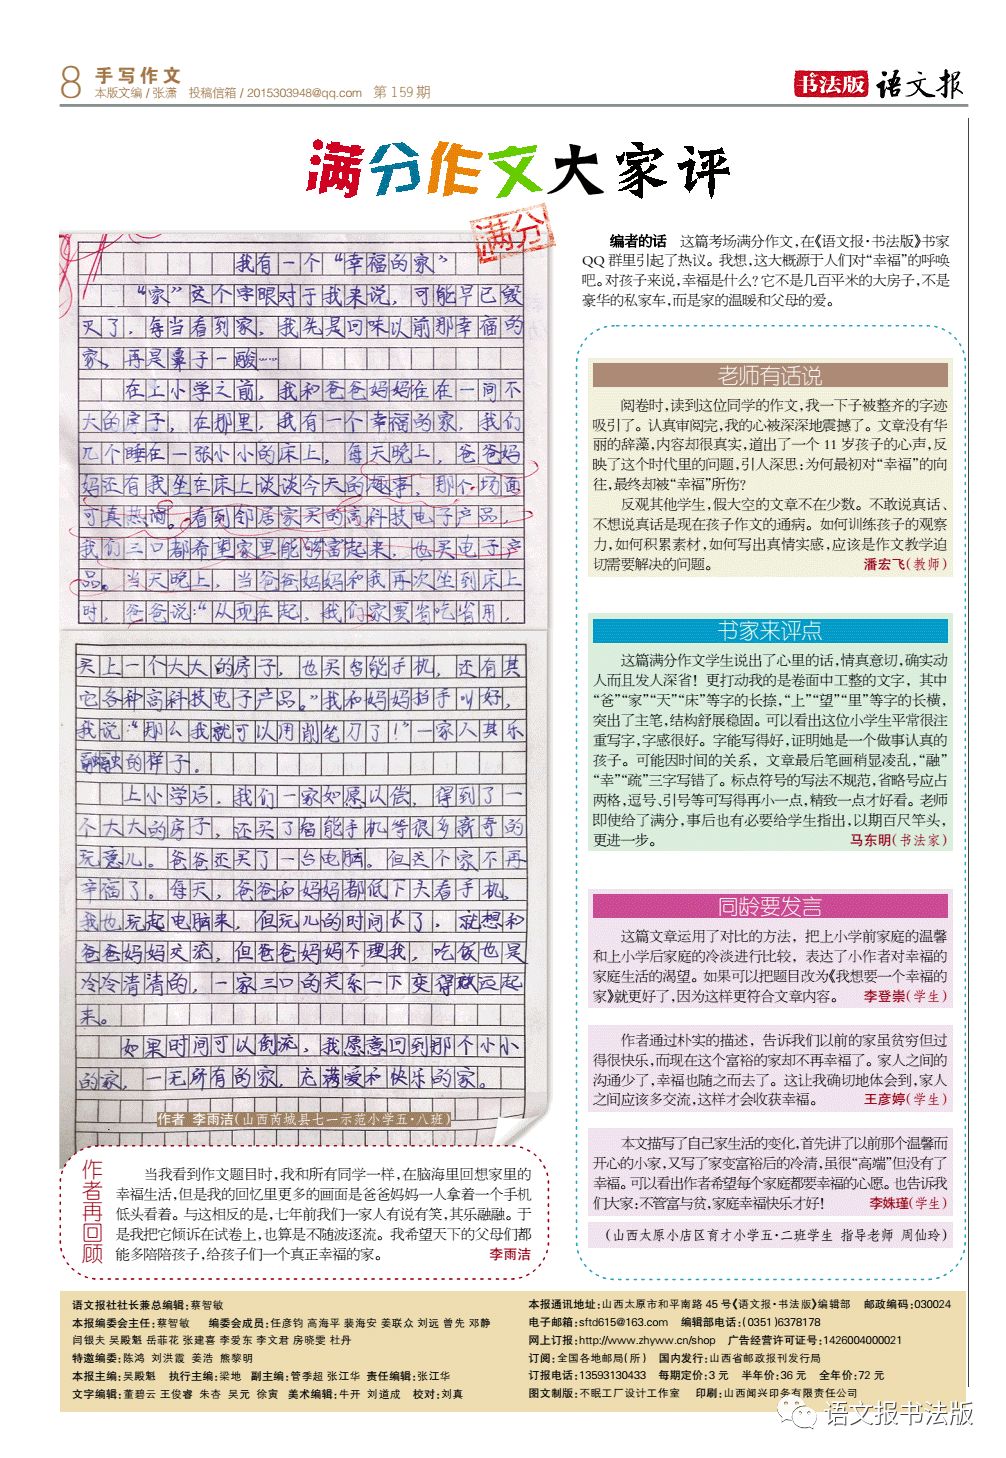 8 手写作文
本版文编 / 张潇 投稿信箱 / 2015303948@qq.com 第159期
书法版 语文报
满分作文大家评
满分
我有一个“幸福的家”
“家”这个字眼对于我来说，可能早已毁
灭了，每当看到家，我先是回味以前那幸福的
家，再是鼻子一酸……
在上小学之前，我和爸爸妈妈住在一间不
大的房子，在那里，我有一个幸福的家，我们
几个睡在一张小小的床上，每天晚上，爸爸妈
妈还有我坐在床上谈谈今天的趣事，那个场面
可真热闹。看到邻居家买的高科技电子产品，
我们三口都希望家里能够富起来，也买电子产
品。当天晚上，当爸爸妈妈和我再次坐到床上
时，爸爸说：“从现在起，我们家要省吃省用，
买上一个大大的房子，也买智能手机，还有其
它各种高科技电子产品。”我和妈妈拍手叫好，
我说：“那么我就可以用削笔刀了！”一家人其乐
融融的样子。
上小学后，我们一家如愿以偿，得到了一
个大大的房子，还买了智能手机等很多新奇的
玩意儿。爸爸还买了一台电脑。但这个家不再
幸福了。每天，爸爸和妈妈都低下头看手机，
我也玩起电脑来，但玩儿的时间长了，就想和
爸爸妈妈交流，但爸爸妈妈不理我，吃饭也是
冷冷清清的，一家三口的关系一下变得疏远起
来。
如果时间可以倒流，我愿意回到那个小小
的家，一无所有的家，充满爱和快乐的家。
作者 李雨洁(山西芮城县七一示范小学五·八班)
作者再回顾
当我看到作文题目时,我和所有同学一样,在脑海里回想家里的
幸福生活,但是我的回忆里更多的画面是爸爸妈妈一人拿着一个手机
低头看着。与这相反的是,七年前我们一家人有说有笑,其乐融融。于
是我把它倾诉在试卷上,也算是不随波逐流。我希望天下的父母们都
能多陪陪孩子,给孩子们一个真正幸福的家。 李雨洁
编者的话 这篇考场满分作文,在《语文报·书法版》书家
QQ群里引起了热议。我想,这大概源于人们对“幸福”的呼唤
吧。对孩子来说,幸福是什么?它不是几百平米的大房子,不是
豪华的私家车,而是家的温暖和父母的爱。
老师有话说
阅卷时,读到这位同学的作文,我一下子被整齐的字迹
吸引了。认真审阅完,我的心被深深地震撼了。文章没有华
丽的辞藻,内容却很真实,道出了一个11岁孩子的心声,反
映了这个时代里的问题,引人深思:为何最初对“幸福”的向
往,最终却被“幸福”所伤?
反观其他学生,假大空的文章不在少数。不敢说真话、
不想说真话是现在孩子作文的通病。如何训练孩子的观察
力,如何积累素材,如何写出真情实感,应该是作文教学迫
切需要解决的问题。 潘宏飞(教师)
书家来评点
这篇满分作文学生说出了心里的话,情真意切,确实动
人而且发人深省!更打动我的是卷面中工整的文字,其中
“爸”“家”“天”“床”等字的长捺,“上”“望”“里”等字的长横,
突出了主笔,结构舒展稳固。可以看出这位小学生平常很注
重写字,字感很好。字能写得好,证明她是一个做事认真的
孩子。可能因时间的关系,文章最后笔画稍显凌乱,“融”
“幸”“疏”三字写错了。标点符号的写法不规范,省略号应占
两格,逗号、引号等可写得再小一点,精致一点才好看。老师
即使给了满分,事后也有必要给学生指出,以期百尺竿头,
更进一步。 马东明(书法家)
同龄要发言
这篇文章运用了对比的方法,把上小学前家庭的温馨
和上小学后家庭的冷淡进行比较,表达了小作者对幸福的
家庭生活的渴望。如果可以把题目改为《我想要一个幸福的
家》就更好了,因为这样更符合文章内容。 李登崇(学生)
作者通过朴实的描述,告诉我们以前的家虽贫穷但过
得很快乐,而现在这个富裕的家却不再幸福了。家人之间的
沟通少了,幸福也随之而去了。这让我确切地体会到,家人
之间应该多交流,这样才会收获幸福。 王彦婷(学生)
本文描写了自己家生活的变化,首先讲了以前那个温馨而
开心的小家,又写了家变富裕后的冷清,虽很“高端”但没有了
幸福。可以看出作者希望每个家庭都要幸福的心愿。也告诉我
们大家:不管富与贫,家庭幸福快乐才好! 李姝瑾(学生)
(山西太原小店区育才小学五·二班学生 指导老师 周仙玲)
语文报社社长兼总编辑:蔡智敏
本报编委会主任:蔡智敏 编委会成员:任彦钧 高海平 裴海安 姜联众 刘远 曾先 邓静
闫银夫 吴殿魁 岳菲花 张建喜 李爱东 李文君 房晓雯 杜丹
特邀编委:陈鸿 刘洪霞 姜浩 熊黎明
本报主编:吴殿魁 执行主编:梁地 副主编:管季超 张江华 责任编辑:张江华
文字编辑:董碧云 王俊睿 朱杏 吴元 徐寅 美术编辑:牛开 刘道成 校对:刘真
本报通讯地址:山西太原市和平南路45号《语文报·书法版》编辑部 邮政编码:030024
电子邮箱:sftd615@163.com 编辑部电话:(0351)6378178
网上订报:http://www.zhyww.cn/shop 广告经营许可证号:1426004000021
订阅:全国各地邮局(所) 国内发行:山西省邮政报刊发行局
订报电话:13593130433 每期定价:3元 半年价:36元 全年价:72元
图文制版:不眠工厂设计工作室 印刷:山西闻兴印务有限责任公司
语文报书法版